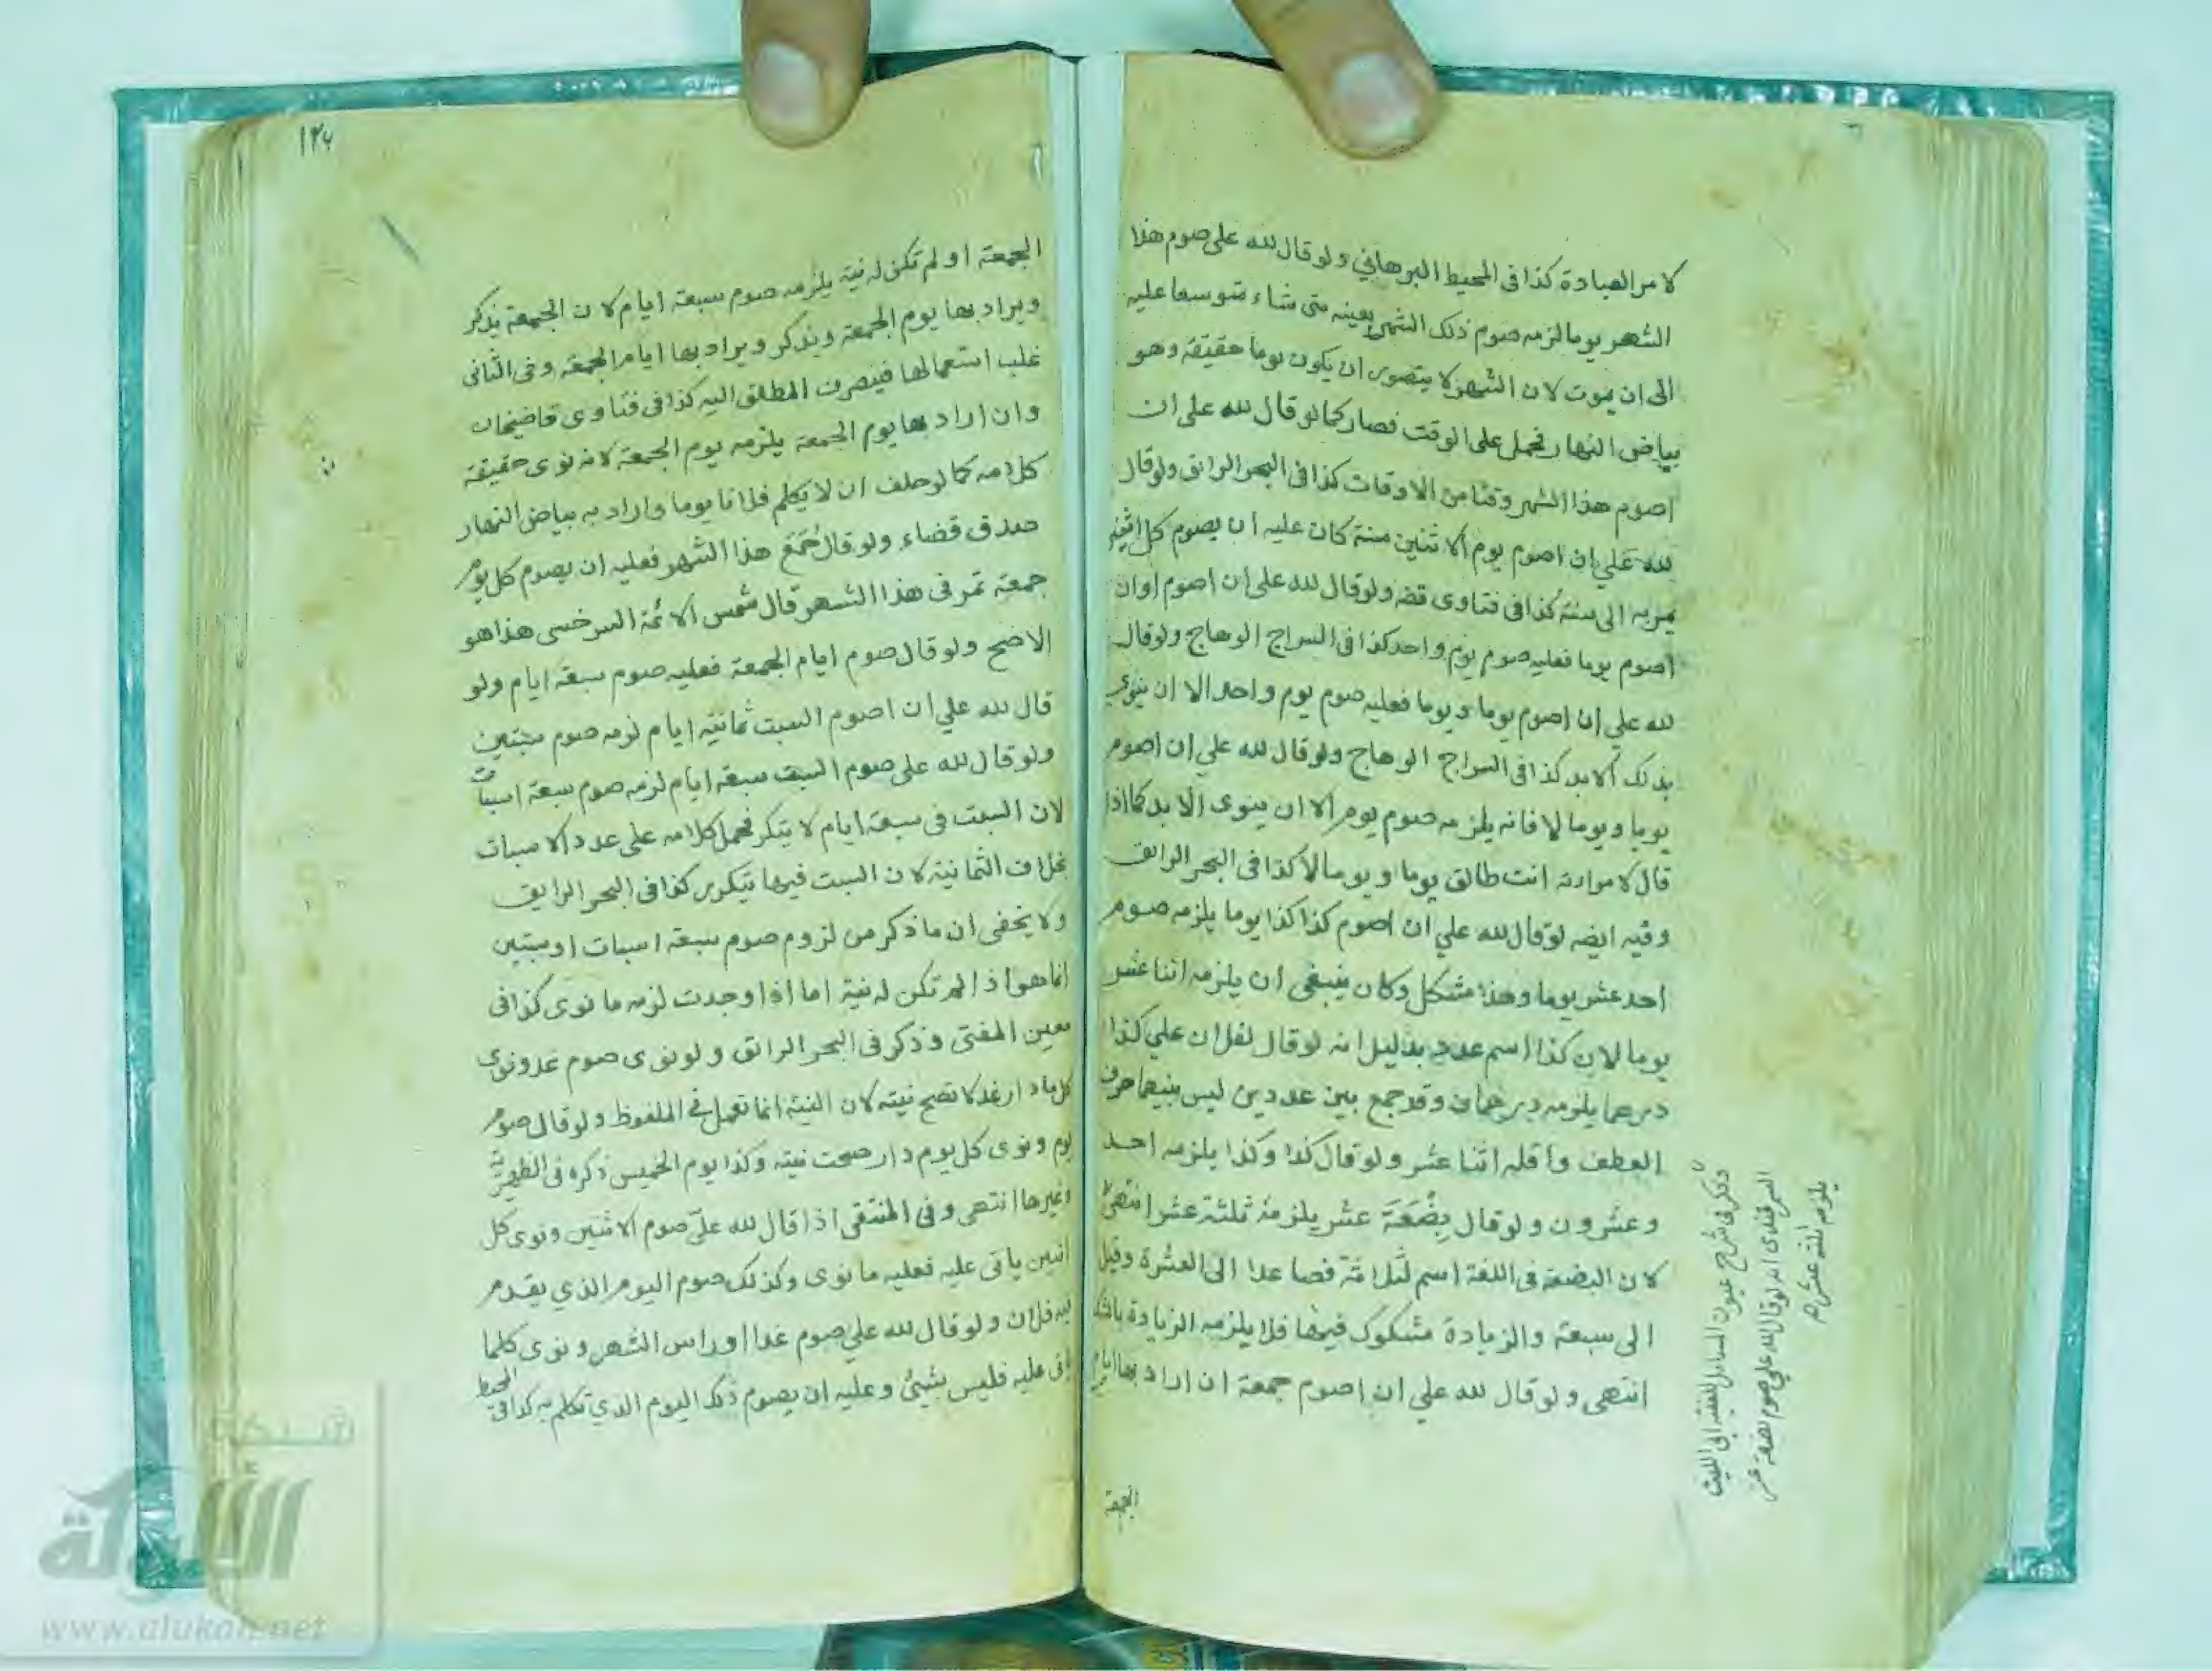 لامر العبادة كذا في المحيط البرهاني ولو قال لله علي صوم هذا
الشهر يوما لزمه صوم ذلك الشهر بعينه متى شاء موسعا عليه
الى ان يموت لان الشهر لا يتصور ان يكون يوما حقيقة وهو
بياض النهار فحمل على الوقت فصار كما لو قال لله علي ان
اصوم هذا الشهر وقتا من الاوقات كذا في البحر الرائق ولو قال
لله علي ان اصوم يوم الاثنين سنة كان عليه ان يصوم كل اثنين
يمر به الى سنة كذا في فتاوى قضه ولو قال لله علي ان اصوم اوان
اصوم يوما فعليه صوم يوم واحد كذا في السراج الوهاج ولو قال
لله علي ان اصوم يوما ويوما فعليه صوم يوم واحد الا ان ينوي
بذلك الابد كذا في السراج الوهاج ولو قال لله علي ان اصوم
يوما ويوما لا فانه يلزمه صوم يوم الا ان ينوى الابد كما اذا
قال لامراته انت طالق يوما ويوما لا كذا في البحر الرائق
وفيه ايضه لو قال لله علي ان اصوم كذا كذا يوما يلزمه صوم
احد عشر يوما وهذا مشكل وكان ينبغي ان يلزمه اثنا عشر
يوما لان كذا اسم عدد بدليل انه لو قال لفلان علي كذا
درهما يلزمه درهمان وقد جمع بين عددين ليس بينهما حرف
العطف واقله اثنا عشر ولو قال كذا وكذا يلزمه احد
وعشرون ولو قال بِضْعَةَ عشر يلزمه ثلثة عشر انتهى
لان البضعة في اللغة اسم لثلاثة فصاعدا الى العشرة وقيل
الى سبعة والزيادة مشكوك فيها فلا يلزمه الزيادة بالشك
انتهى ولو قال لله علي ان اصوم جمعة ان اراد بها ايام
الجمعة
وذكر في شرح عيون المسائل للفقيه ابى الليث
السمرقندى انه لو قال لله علي صوم بضعة عشر
يلزمه ثلثة عشر
١٢٦
الجمعة او لم تكن له نية يلزمه صوم سبعة ايام لان الجمعة يذكر
ويراد بها يوم الجمعة ويذكر ويراد بها ايام الجمعة وفي الثانى
غلب استعمالها فينصرف المطلق اليه كذا في فتاوى قاضيخان
وان اراد بها يوم الجمعة يلزمه يوم الجمعة لانه نوى حقيقة
كلامه كما لو حلف ان لا يكلم فلانا يوما واراد به بياض النهار
صدق قضاء ولو قال جُمَعَ هذا الشهر فعليه ان يصوم كل يوم
جمعة تمر في هذا الشهر قال شمس الائمة السرخسى هذا هو
الاصح ولو قال صوم ايام الجمعة فعليه صوم سبعة ايام ولو
قال لله علي ان اصوم السبت ثمانية ايام لزمه صوم سبتين
ولو قال لله علي صوم السبت سبعة ايام لزمه صوم سبعة اسبات
لان السبت في سبعة ايام لا يتكرر فحمل كلامه على عدد الاسبات
بخلاف الثمانية لان السبت فيها يتكرر كذا في البحر الرايق
ولا يخفى ان ما ذكر من لزوم صوم سبعة اسبات او سبتين
انما هو اذا لم تكن له نية اما اذا وجدت لزمه ما نوى كذا في
معين المفتى وذكر في البحر الرائق ولو نوى صوم غد ونوى
كل ما دار غد لا تصح نيته لان النية انما تعمل في الملفوظ ولو قال صوم
يوم ونوى كل يوم دار صحت نيته وكذا يوم الخميس ذكره في الظهيرية
وغيرها انتهى وفي المنتقى اذا قال لله عليّ صوم الاثنين ونوى كل
اثنين ياتى عليه فعليه ما نوى وكذلك صوم اليوم الذي يقدم
فيه فلان ولو قال لله علي صوم غدا او راس الشهر ونوى كلما
ياتى عليه فليس بشيئ وعليه ان يصوم ذلك اليوم الذي تكلم به كذا في المحيط
شبكة
الألوكة
www.alukah.net